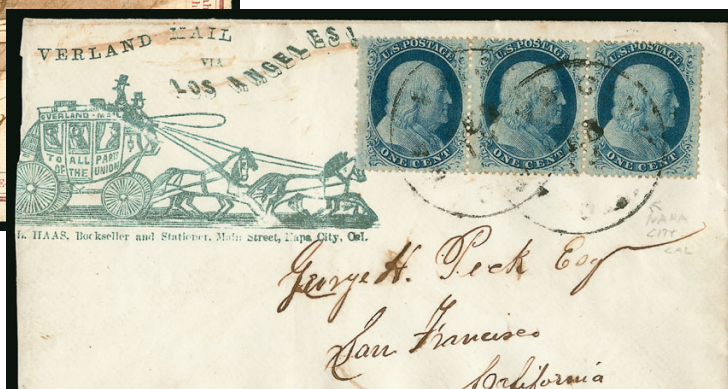 VERLAND MAIL
VIA
LOS ANGELES!
OVERLAND-MAIL
TO ALL PART
OF THE UNION
L. HAAS, Bookseller and Stationer, Main Street, Napa City, Cal.
U.S. POSTAGE U.S. POSTAGE U.S. POSTAGE
ONE CENT ONE CENT ONE CENT
NAPA
CITY
CAL
George H. Peck Esq
San Francisco
California